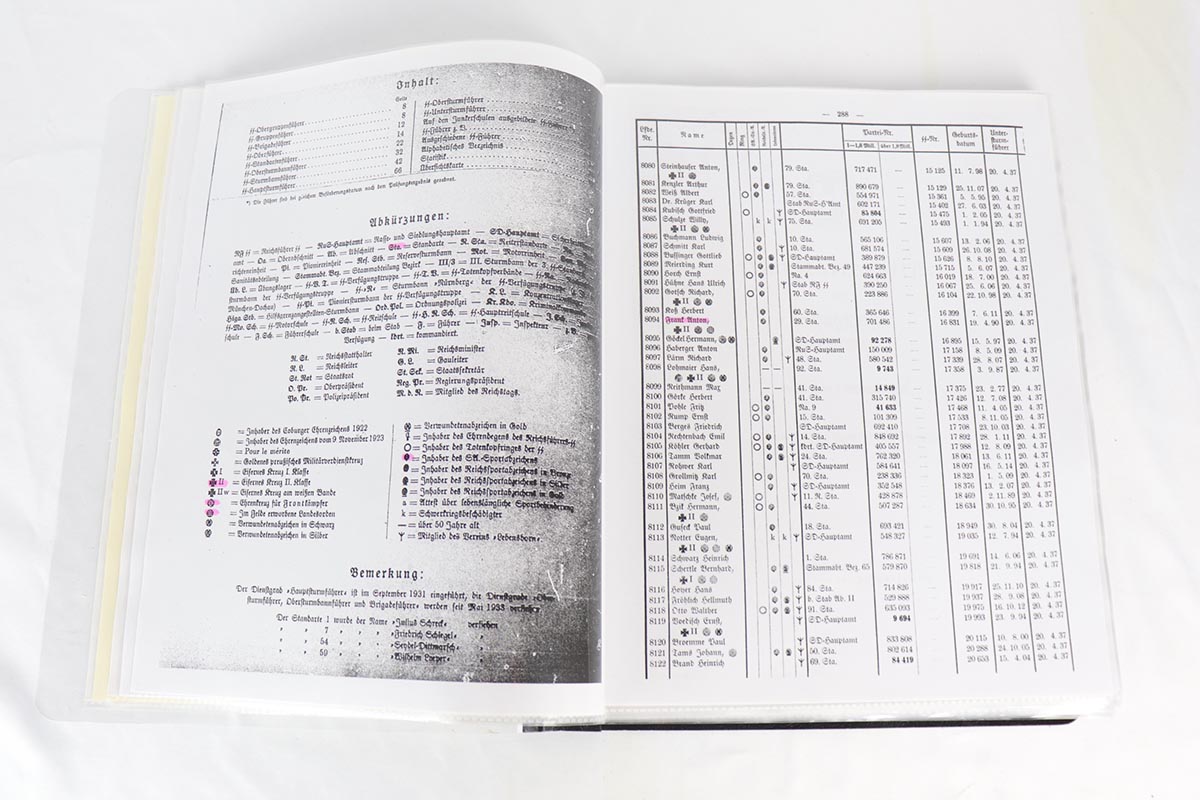 Inhalt:
Seite
SS-Obergruppenführer 8
SS-Gruppenführer 8
SS-Brigadeführer 12
SS-Oberführer 14
SS-Standartenführer 22
SS-Obersturmbannführer 32
SS-Sturmbannführer 42
SS-Hauptsturmführer 66
SS-Obersturmführer
SS-Untersturmführer
Auf den Junkerschulen ausgebildete
SS-Führer z. V.
Ausgeschiedene SS-Führer
Alphabetisches Verzeichnis
Statistik
Übersichtskarte
*) Die Führer sind bei gleichem Beförderungsdatum nach dem Prüfungsergebnis geordnet.
Abkürzungen:
RF SS = Reichsführer SS — RuS-Hauptamt = Rasse- und Siedlungshauptamt — SD-Hauptamt =
amt — Oa. = Oberabschnitt — Ab. = Abschnitt — Sta. = Standarte — R. Sta. = Reiterstandarte
richteneinheit — Pi. = Pioniereinheit — Ref. Stb. = Reservesturmbann — Mot. = Motoreinheit
Sanitätsabteilung — Stammabt. Bez. = Stammabteilung Bezirk — III/3 = III. Sturmbann der 3. SS
Üb. L. = Übungslager — SS-V. T. = SS-Verfügungstruppe — SS-T. V. = SS-Totenkopfverbände — Sa.
sturmbann der SS-Verfügungstruppe — SS»N« = Sturmbann »Nürnberg« der SS-Verfügungstruppe
München-Dachau) — SS-Pi. = Pioniersturmbann der SS-Verfügungstruppe — K. L. =
Höga. Stb. = Hilfsgrenzangestellten-Sturmbann — Ord. Pol. = Ordnungspolizei — Kr. Kdo. =
SS-Mo. Sch. = SS-Motorschule — SS-R. Sch. = SS-Reitschule — SS-H. R. Sch. = SS-Hauptreitschule — J. Sch.
schule — F. Sch. = Führerschule — b. Stab = beim Stab — F. = Führer — Insp. = Inspekteur — z. V.
Verfügung — kdrt. = kommandiert.
R. St. = Reichsstatthalter
R. L. = Reichsleiter
St. Rat = Staatsrat
O. Pr. = Oberpräsident
Po. Pr. = Polizeipräsident
R. Mi. = Reichsminister
G. L. = Gauleiter
St. Sek. = Staatssekretär
Reg. Pr. = Regierungspräsident
M. d. R. = Mitglied des Reichstags.
= Inhaber des Coburger Ehrenzeichens 1922
= Inhaber des Ehrenzeichens vom 9. November 1923
= Pour le mérite
= Goldenes preußisches Militärverdienstkreuz
I = Eisernes Kreuz I. Klasse
II = Eisernes Kreuz II. Klasse
II w = Eisernes Kreuz am weißen Bande
= Ehrenkreuz für Frontkämpfer
= Im Felde erworbene Landesorden
= Verwundetenabzeichen in Schwarz
= Verwundetenabzeichen in Silber
= Verwundetenabzeichen in Gold
= Inhaber des Ehrendegens des Reichsführers SS
= Inhaber des Totenkopfringes der SS
= Inhaber des SA-Sportabzeichens
= Inhaber des Reichssportabzeichens in Bronze
= Inhaber des Reichssportabzeichens in Silber
= Inhaber des Reichssportabzeichens in Gold
a = Attest über lebenslängliche Sportbehinderung
k = Schwerkriegsbeschädigter
— = über 50 Jahre alt
= Mitglied des Vereins »Lebensborn«
Bemerkung:
Der Dienstgrad »Hauptsturmführer« ist im September 1931 eingeführt, die Dienstgrade »Ober-
sturmführer, Obersturmbannführer und Brigadeführer« werden seit Mai 1933 verliehen
Der Standarte 1 wurde der Name »Julius Schreck« verliehen
" " 7 " " »Friedrich Schlegel« "
" " 54 " " »Seydel-Dittmarsch« "
" " 59 " " »Wilhelm Loeper« "
— 288 —
Lfde. Nr. Name Degen Ring Partei-Nr. 1—1,8 Mill. über 1,8 Mill. SS-Nr. Geburtsdatum Untersturmführer
8080 Steinhauser Anton, 79. Sta. 717 471 — 15 125 11. 7. 98 20. 4. 37
II
8081 Kenzler Arthur 79. Sta. 890 679 — 15 129 25. 11. 07 20. 4. 37
8082 Weiß Albert 57. Sta. 554 971 — 15 361 5. 5. 95 20. 4. 37
8083 Dr. Krüger Karl Stab RuS-H'Amt 602 171 — 15 402 27. 6. 03 20. 4. 37
8084 Kubisch Gottfried SD-Hauptamt 85 804 — 15 475 1. 2. 05 20. 4. 37
8085 Schulze Willy, k k 75. Sta. 691 205 — 15 493 1. 1. 94 20. 4. 37
II
8086 Buchmann Ludwig 10. Sta. 565 106 — 15 607 13. 2. 06 20. 4. 37
8087 Schmitt Karl 10. Sta. 681 574 — 15 609 26. 10. 08 20. 4. 37
8088 Bussinger Gottlieb SD-Hauptamt 389 879 — 15 626 8. 8. 10 20. 4. 37
8089 Meierding Kurt Stammabt. Bez. 49 447 239 — 15 715 5. 6. 07 20. 4. 37
8090 Horch Ernst Na. 4 624 663 — 16 019 18. 7. 00 20. 4. 37
8091 Hühne Hans Ulrich Stab RF SS 390 250 — 16 067 25. 6. 06 20. 4. 37
8092 Gotsch Richard, 70. Sta. 223 886 — 16 104 22. 10. 98 20. 4. 37
II
8093 Koß Herbert 60. Sta. 365 646 — 16 399 7. 6. 11 20. 4. 37
8094 Frank Anton, 29. Sta. 701 486 — 16 831 19. 4. 90 20. 4. 37
II
8095 Göckel Hermann, SD-Hauptamt 92 278 — 16 895 15. 5. 97 20. 4. 37
8096 Haberger Anton RuS-Hauptamt 150 009 — 17 158 8. 5. 09 20. 4. 37
8097 Lärm Richard 48. Sta. 580 542 — 17 339 28. 8. 07 20. 4. 37
8098 Lohmaier Hans, — — 92. Sta. 9 743 — 17 358 3. 9. 87 20. 4. 37
II
8099 Reithmann Max — — 41. Sta. 14 849 — 17 375 23. 2. 77 20. 4. 37
8100 Görke Herbert 41. Sta. 315 740 — 17 426 12. 7. 08 20. 4. 37
8101 Pohle Fritz Na. 9 41 633 — 17 468 11. 4. 05 20. 4. 37
8102 Rump Ernst 15. Sta. 101 309 — 17 533 8. 11. 05 20. 4. 37
8103 Berges Friedrich SD-Hauptamt 692 410 — 17 708 23. 10. 03 20. 4. 37
8104 Rechtenbach Emil 14. Sta. 848 692 — 17 892 28. 1. 11 20. 4. 37
8105 Köhler Gerhard kdrt. SD-Hauptamt 405 557 — 17 988 12. 8. 09 20. 4. 37
8106 Tamm Volkmar 24. Sta. 762 320 — 18 061 13. 6. 11 20. 4. 37
8107 Rohwer Karl SD-Hauptamt 584 641 — 18 097 16. 5. 14 20. 4. 37
8108 Grollmitz Karl 70. Sta. 238 336 — 18 323 1. 5. 09 20. 4. 37
8109 Heim Franz SD-Hauptamt 352 548 — 18 376 13. 2. 07 20. 4. 37
8110 Matschke Josef, 11. R. Sta. 428 878 — 18 469 2. 11. 89 20. 4. 37
8111 Bzik Hermann, 44. Sta. 507 287 — 18 634 30. 10. 95 20. 4. 37
II
8112 Guseck Paul 18. Sta. 693 421 — 18 949 30. 8. 04 20. 4. 37
8113 Rotter Eugen, k k SD-Hauptamt 548 327 — 19 085 12. 7. 94 20. 4. 37
II
8114 Schwarz Heinrich 1. Sta. 786 871 — 19 691 14. 6. 06 20. 4. 37
8115 Schertle Bernhard, Stammabt. Bez. 65 579 870 — 19 818 21. 9. 94 20. 4. 37
I
8116 Heyer Hans 84. Sta. 714 826 — 19 917 25. 11. 10 20. 4. 37
8117 Fröhlich Hellmuth b. Stab Ab. II 529 888 — 19 937 28. 9. 08 20. 4. 37
8118 Otto Walther 91. Sta. 635 093 — 19 975 16. 10. 12 20. 4. 37
8119 Boedisch Ernst, SD-Hauptamt 9 694 — 19 993 23. 9. 94 20. 4. 37
II
8120 Broemme Paul SD-Hauptamt 833 808 — 20 115 10. 8. 00 20. 4. 37
8121 Tams Johann, 50. Sta. 802 614 — 20 288 24. 10. 05 20. 4. 37
8122 Brand Heinrich 69. Sta. 84 419 — 20 653 15. 4. 04 20. 4. 37